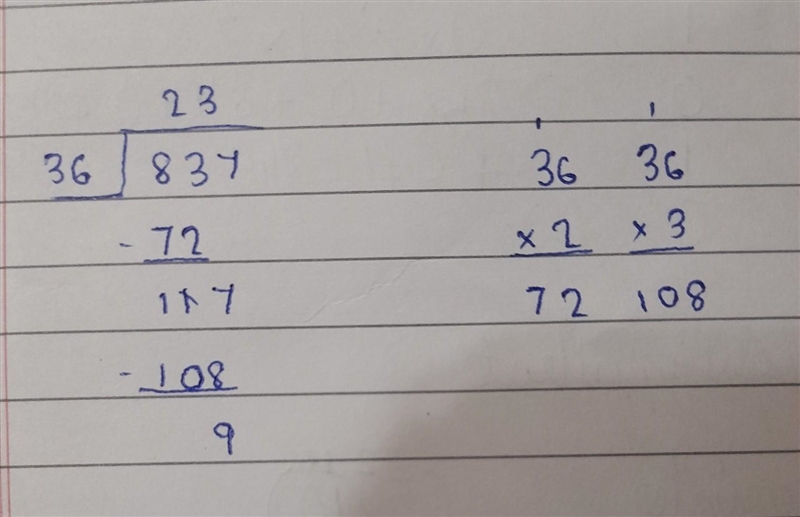 23
36 837
- 72
117
- 108
9
1 1
36 36
× 2 × 3
72 108